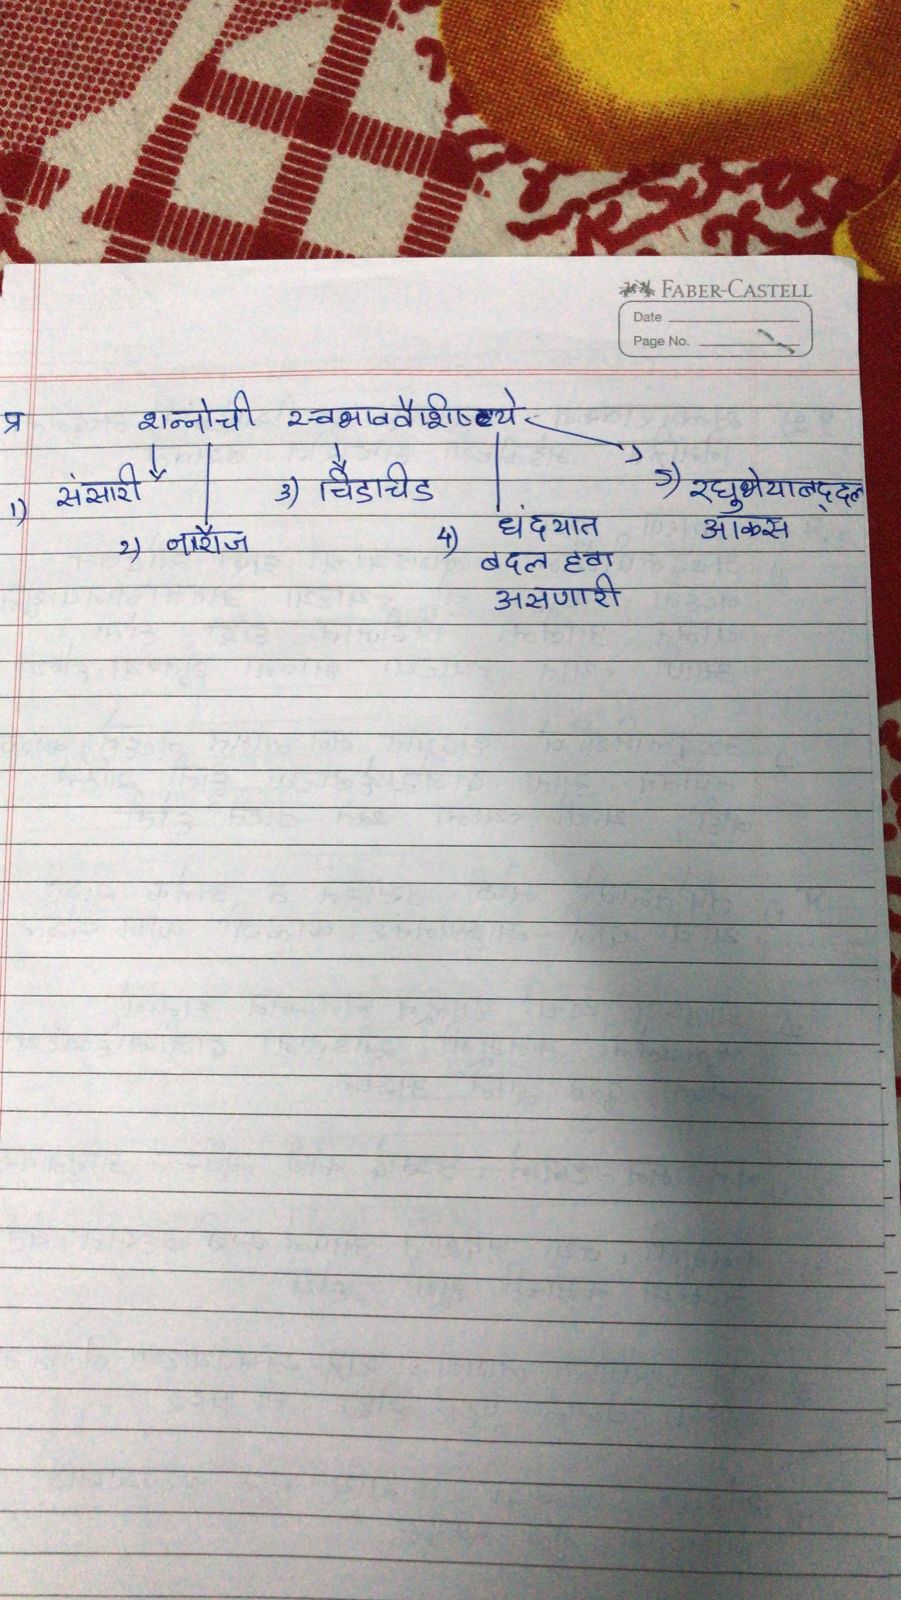 FABER-CASTELL
Date
Page No.
प्र शन्नोची स्वभाववैशिष्ट्ये
1) संसारी
2) नाराज
3) चिडाचीड
4) धंदयात
बदल हवा
असणारी
5) रघुभैयाबद्दल
आकस